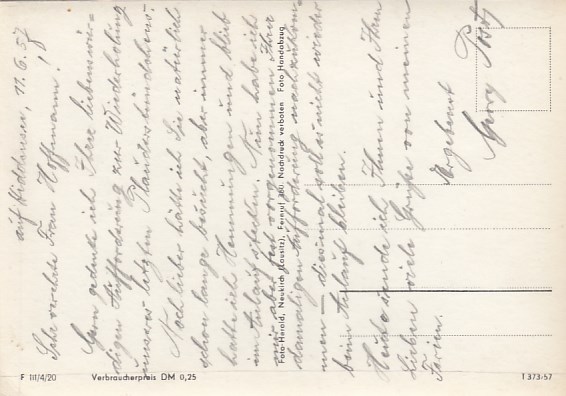 auf Hiddensee, 11.6.57
Sehr verehrte Frau Hoffmann!
Gern gedenke ich Ihrer liebenswür-
digen Aufforderung zur Wiederholung
unseres letzten Plauderstündchens.
Noch lieber hätte ich Sie natürlich
schon lange besucht, aber immer
hatte ich Hemmungen und blieb
im Anlauf stecken. Nun habe ich
mir aber fest vorgenommen Ihrer
damaligen Aufforderung nachzukom-
men – diesmal soll es nicht wieder
beim Anlauf bleiben.
Heute sende ich Ihnen und Ihren
Lieben viele Grüße von meinen
Ferien.
Ergebenst
Georg Post
Foto-Herold, Neukirch (Lausitz), Fernruf 280. Nachdruck verboten Foto Handabzug
F III/4/20 Verbraucherpreis DM 0,25 T 373-57